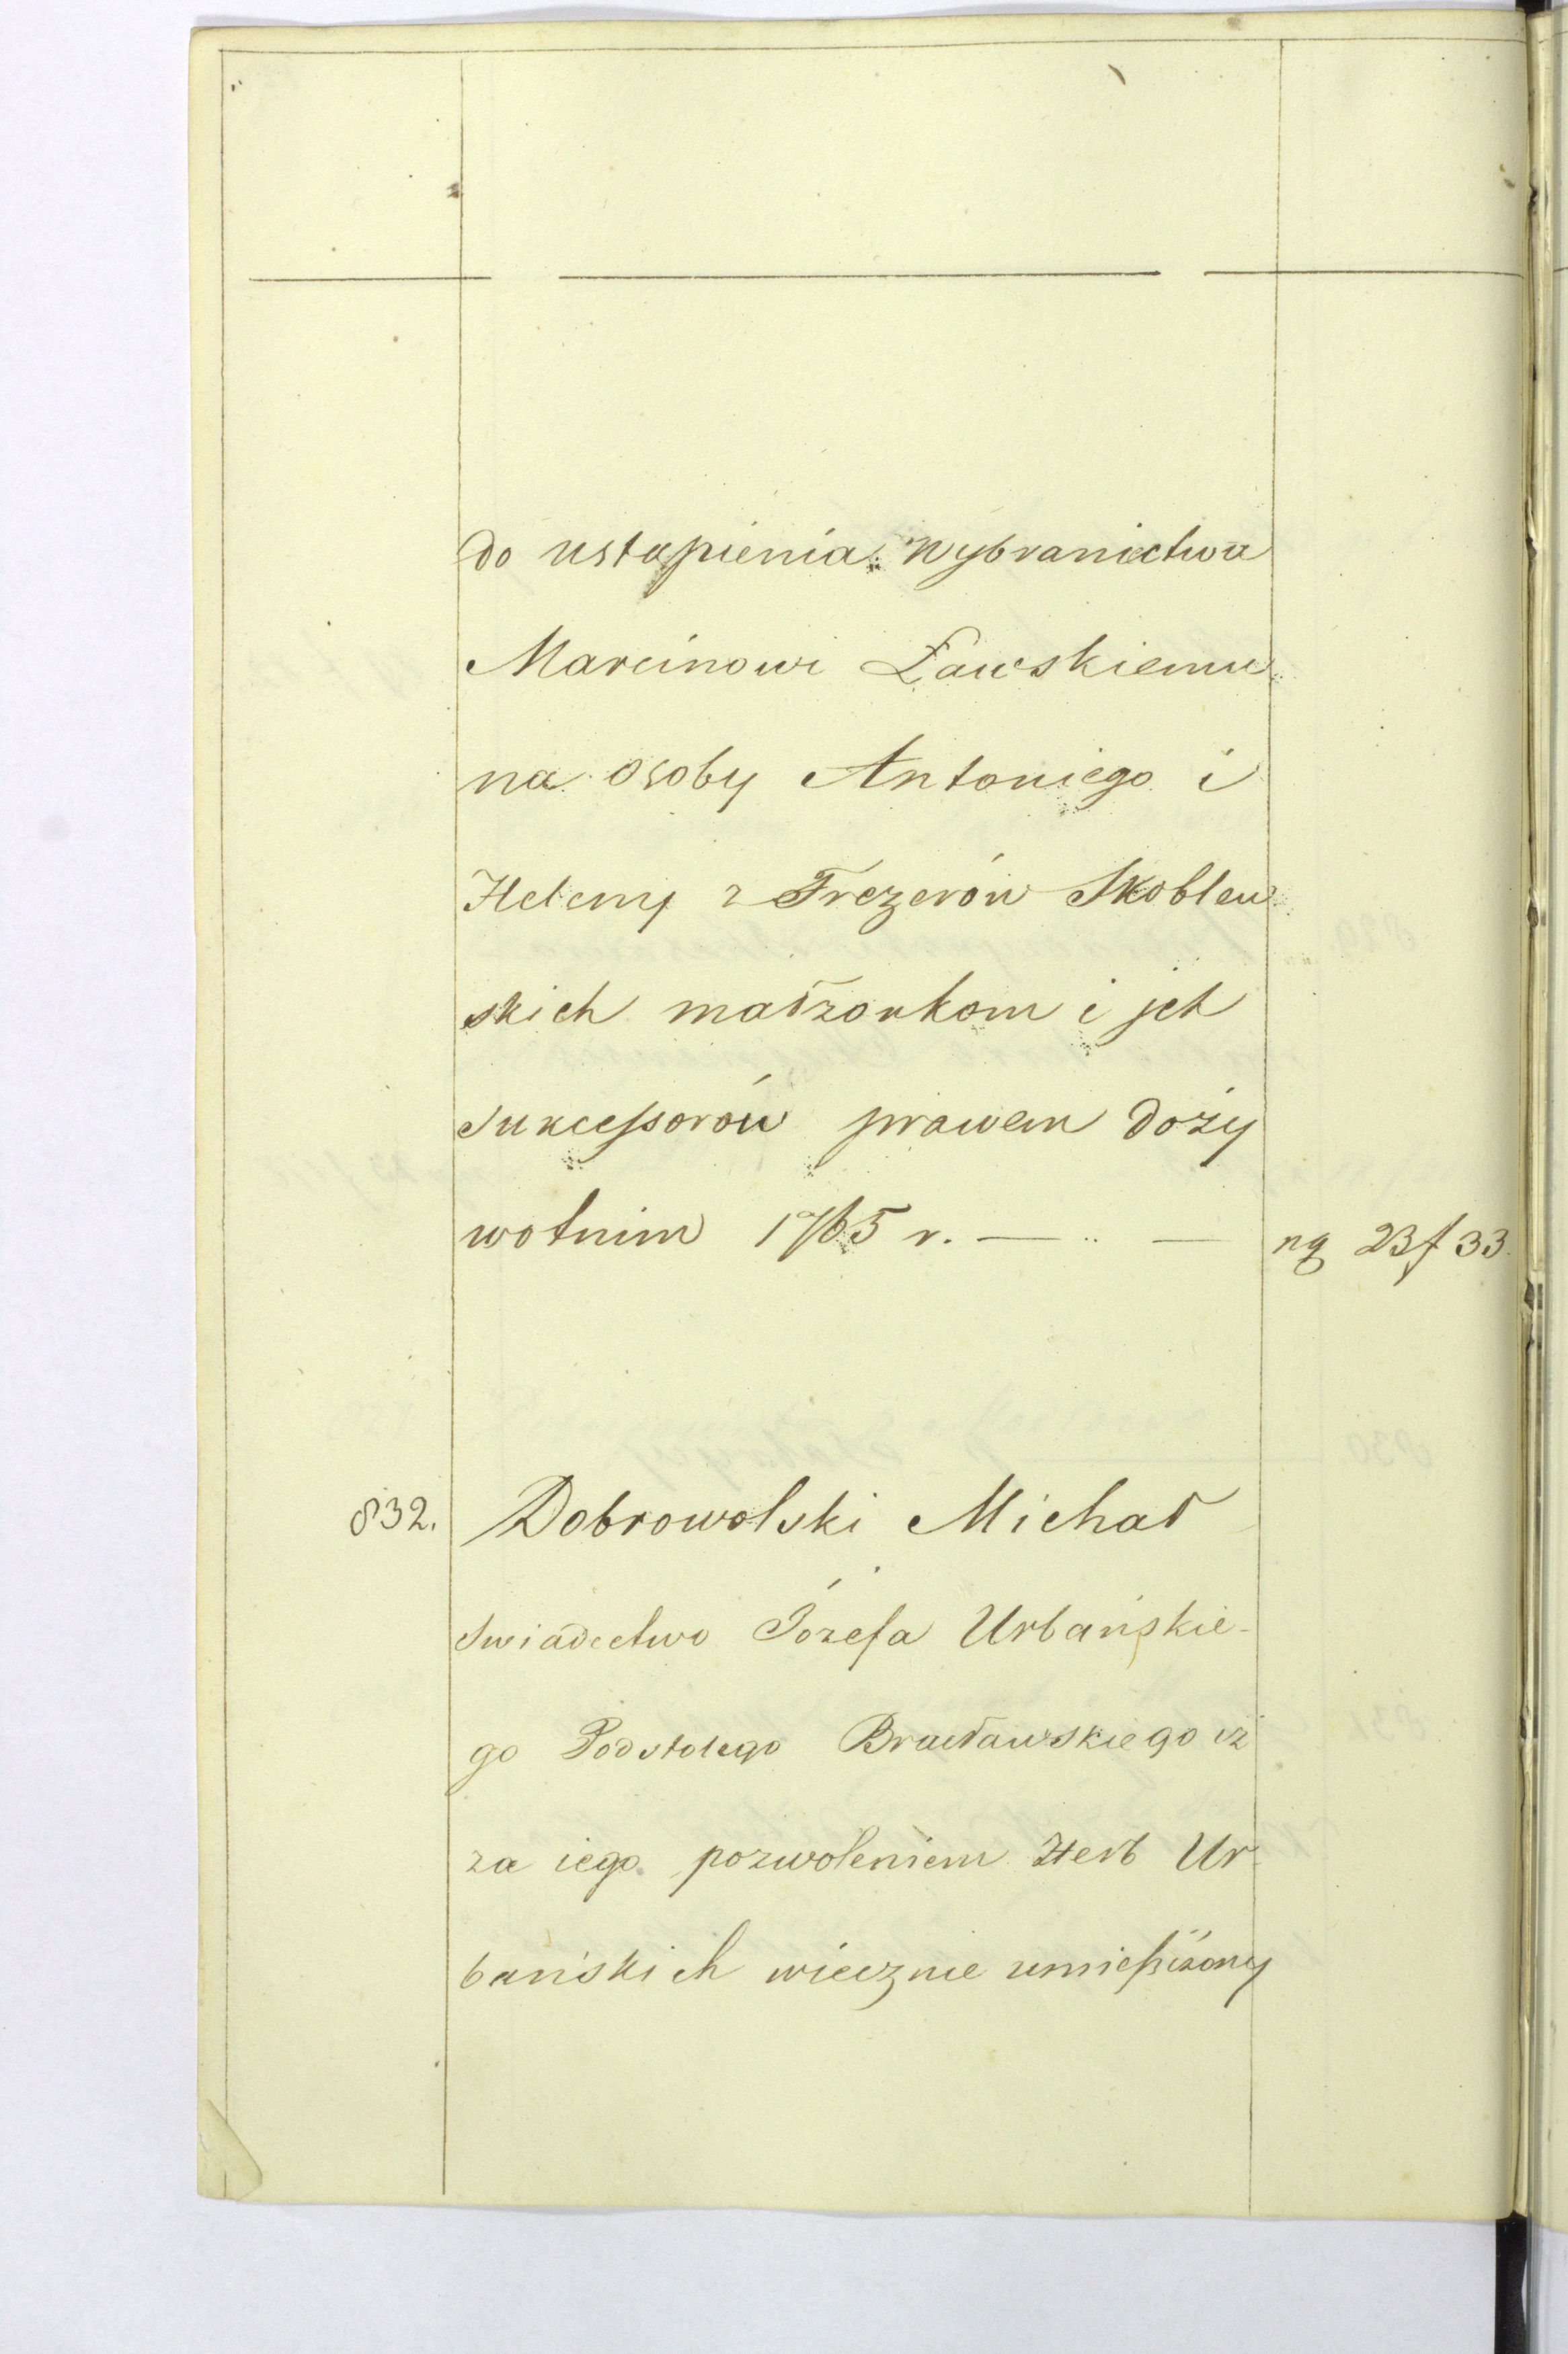 do ustąpienia Wybranictwa
Marcinowi Ławskiemu
na osoby Antoniego i
Heleny z Frezerów Skoblew
skich małzonkom i jch
Sukcessorów prawem doży
wotnim 1765 r. — .. — ng 23 f 33.
832. Dobrowolski Michał
Swiadectwo Józefa Urbańskie-
go Podstolego Bracławskiego iż
za iego pozwoleniem Herb Ur
bańskich wiecznie